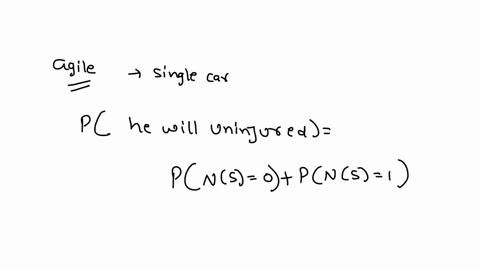 agile → single car
P( he will uningured) =
P(N(S) = 0) + P(N(S) = 1)